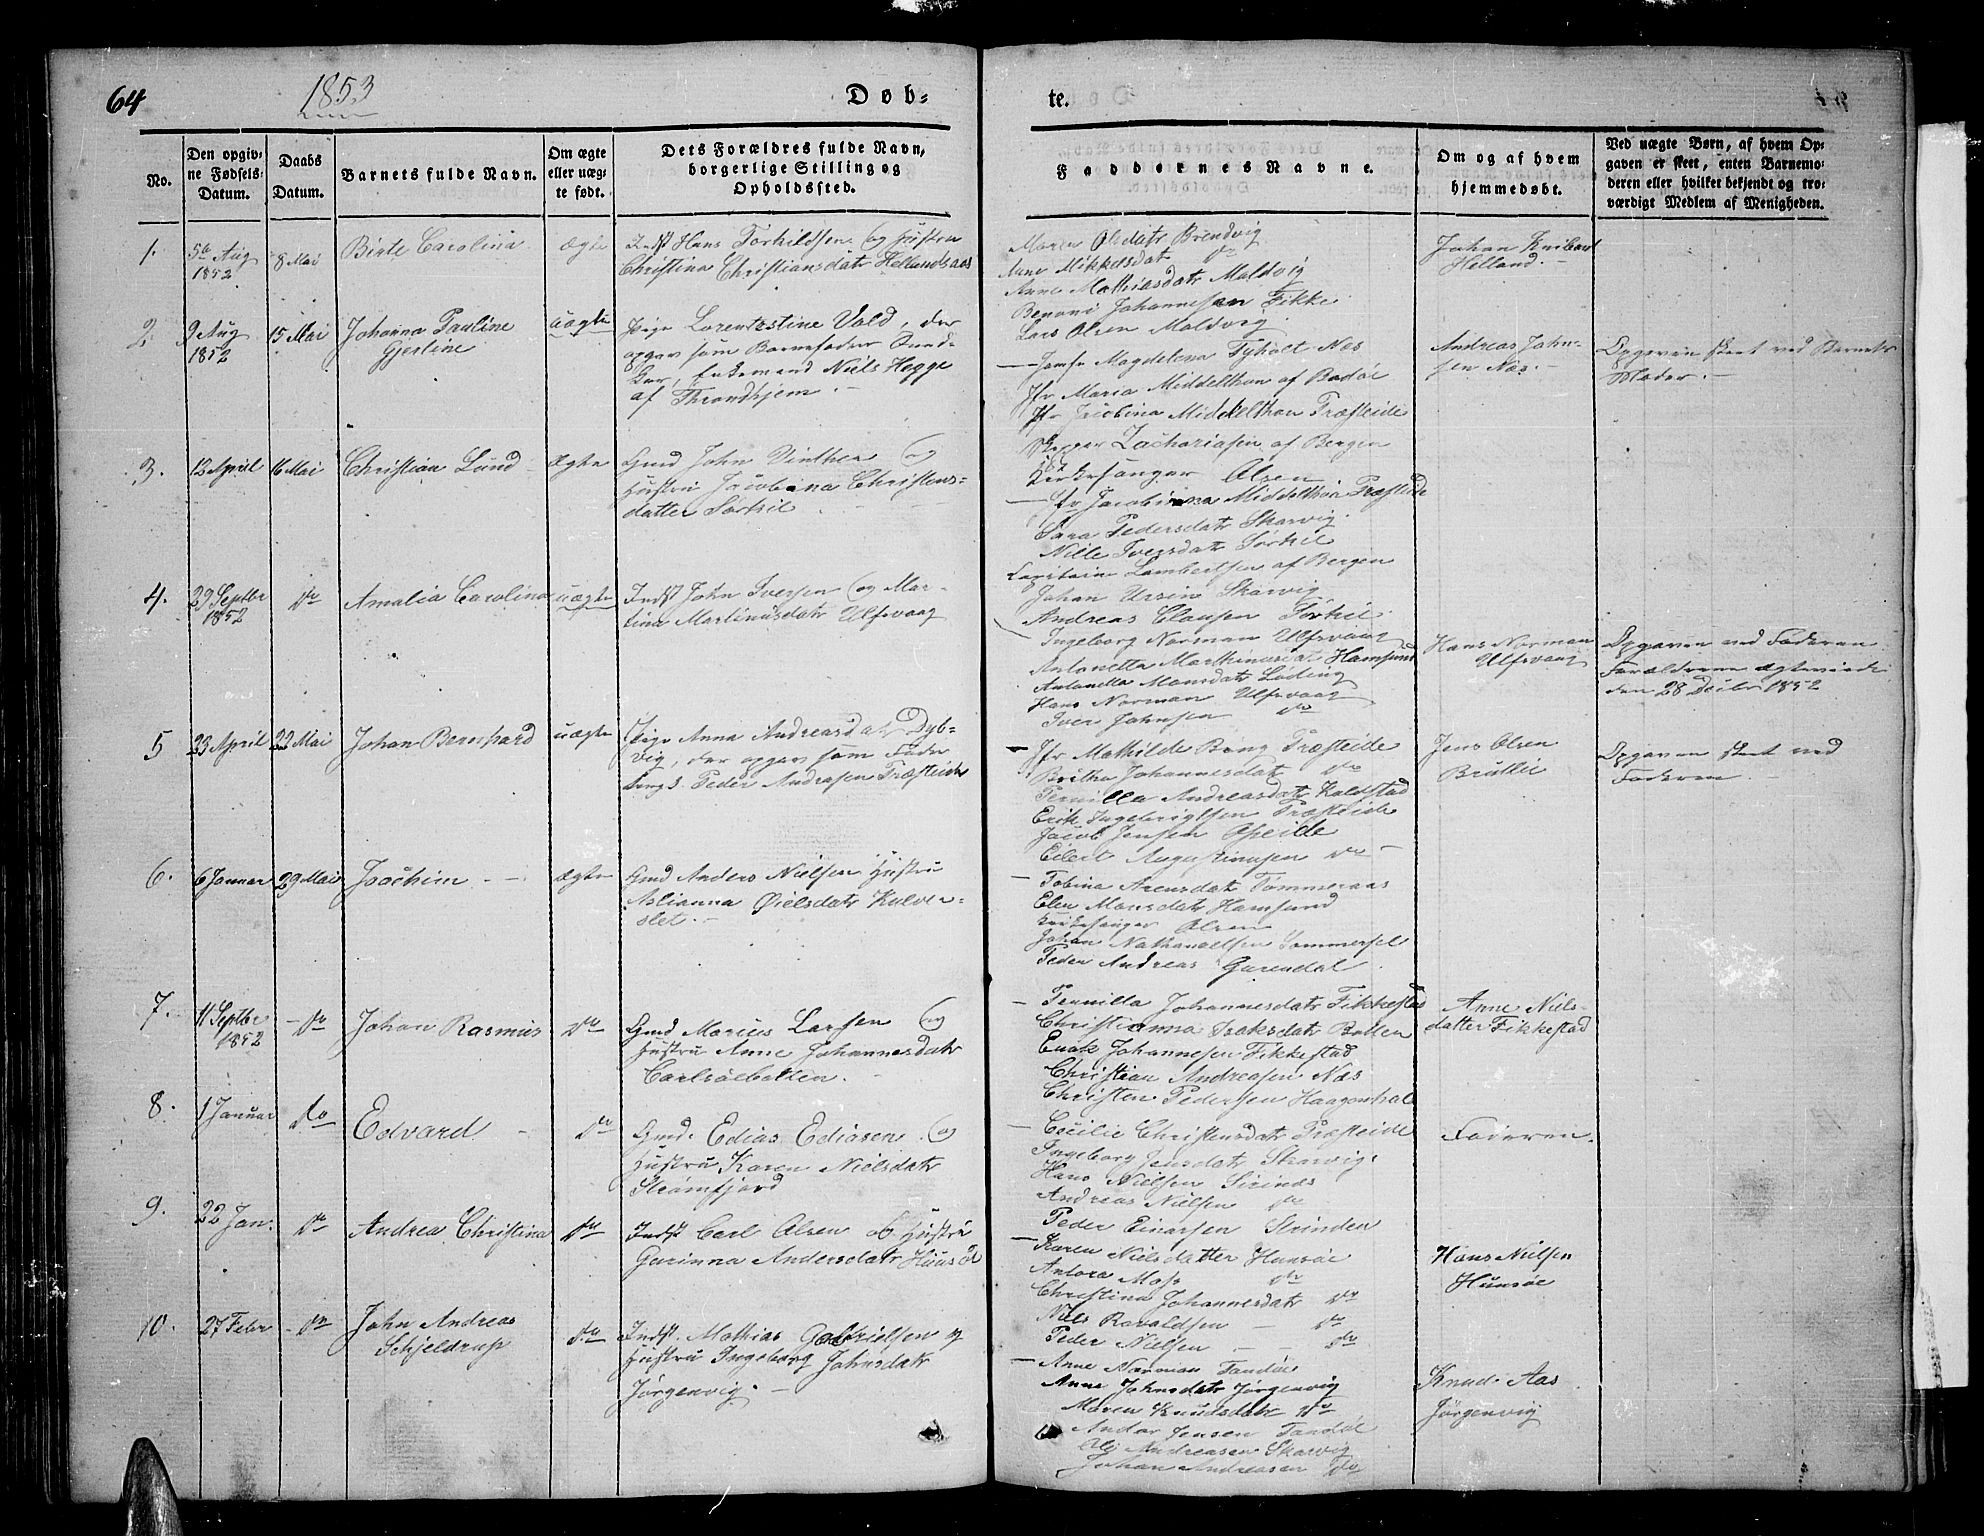 64
1853
Døb-
te.
No.
Den opgiv-
ne Fødsels-
Datum.
Daabs
Datum.
Barnets fulde Navn.
Om ægte
eller uæg-
te født.
Dets Forældres fulde Navn,
borgerlige Stilling og
Opholdssted.
Faddernes Navne.
Om og af hvem
hjemmedøbt.
Ved uægte Børn, af hvem Op-
gaven er skeet, enten Barnemo-
deren eller hvilket bekjendt og tro-
værdigt Medlem af Menigheden.
1.
5te Aug
1852
8 Mai
Birte Carolina
ægte
Indst Hans Torkildsen og Hustru
Christina Christiansdatr Hellandsaas
Maren Olsdatr Brendvig
Anne Mikkelsdat do
Anne Mathiasdatr Maldvig
Benoni Johannesen Fikke
Lars Olsen Maldvig
Johan
Helland.
2
9 Aug
1852
15 Mai
Johanna Pauline
Gjertine
uægte
Pige Lorentestine Vold, der
opgav som Barnefader Sned-
ker, Enkemand Niels Hegge
af Throndhjem.
Magdelena Tyholt Næs
Jfr Maria Middelthon af Bodøe
Jfr Jacobina Middelthon Præsteide
Skipper Zachariasen af Bergen
Kirkesanger Olsen
Andreas John-
sen Næs.
Opgaven skeet ved Barnets
Moder.
3.
12 April
16 Mai
Christian Lund
Ægte
Gmd John Vinther og
Hustru Jacobina Christens-
datter Sørkil
Jfr Jacobina Middelthon Præsteide
Sara Pedersdatr Skarvig
Nille Iversdatr Sørkil
Capitain Lambertsen af Bergen
Johan Ursin Skarvig
Andreas Clausen Sørkil
4.
29 Septbr
1852
do
Amalia Carolina
uægte
Indst John Iversen og Mar-
tina Martinusdatr Ulfsvaag
Ingeborg Norman Ulfsvaag
Antonetta Marthinusdat Hamsund
Antonetta Monsdatr Løding
Hans Norman Ulfsvaag
Iver Johnsen do
Hans Norman
Ulfsvaag
Opgaven ved Faderen
Forældrene ægteviede
den 28 Decbr 1852
5
23 April
22 Mai
Johan Bernhard
uægte
Pige Anna Andreasdat Dyb-
vig, der opgav som Fader
Ung. Peder Andrasen Præsteide
Jfr Mathilde Bong Præsteide
Britha Johannesdat do
Pernilla Andreasdatr Kaldstad
Erik Ingebrigtsen Præsteide
Jacob Jensen Opeide
Eilert Augustinusen do
Jens Olsen
Opgaven skeet ved
Faderen
6.
6 Januar
29 Mai
Joachim
ægte
Gmd Anders Nielsen Hustru
Aslianna Øielsdatr Kulver-
slet.
Tobina Arensdatr Tømmeraas
Elen Monsdatr Hamsund
Kirkesanger Olsen
Johan Nathanaelsen Sommersel
Peder Andreas
7.
11 Septbr
1852
do
Johan Rasmus
do
Gmd Marius Larsen og
Hustru Anne Johannesdatr
Carlsøebotten.
Pernilla Johannesdatr Fikkestad
Christianna Isaksdatr Botten
Enok Johannesen Fikkestad
Christian Andreasen Næs
Christen Pedersen Haagenhal
Anne Niels
datter Fikkestad
8.
1 Januar
do
Edvard
do
Gmd. Edias Ediasen og
Hustru Karen Nielsdatr
Strømfjord
Cecilie Christensdatr Præsteide
Ingeborg Jensdatr Skarvig
Hans Nielsen
Andreas Nielsen do
Peder Einarsen Strinden
Faderen.
9.
22 Jan.
do
Andrea Christina
do
Indst Carl Olsen og Hustru
Gurinna Andersdatr
Karen Nielsdatter Hunsøe
Antora Moss do
Christina Johannesdatr do
Niels Ravaldsen do
Peder Nielsen do
Hans Nielsen
Hunsøe
10.
27 Febr
do
John Andreas
Schjeldrup
do
Indst. Mathias Gabrielsen og
Hustru Ingeborg Johnsdatr
Jørgenvig.
Anne Norman Tandøe
Anne Johnsdatr Jørgenvig
Maren Knudsdatr do
Andor Jensen Tandøe
Ole Andreasen Skarvig
Johan Andreasen do
Knud Aas
Jørgenvig